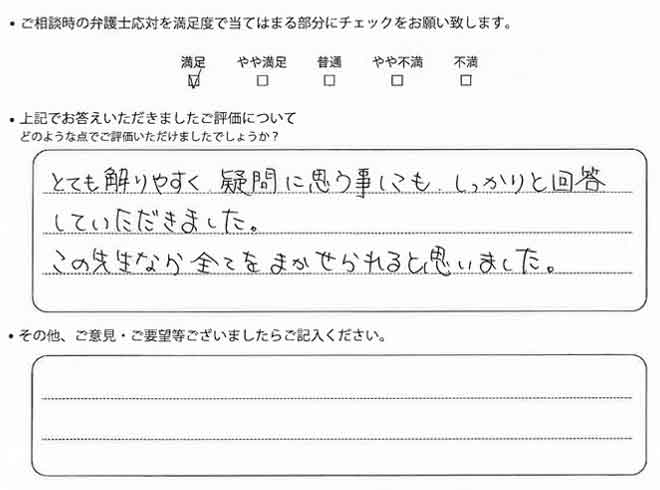 • ご相談時の弁護士応対を満足度で当てはまる部分にチェックをお願い致します。
満足 やや満足 普通 やや不満 不満
☑ □ □ □ □
• 上記でお答えいただきましたご評価について
どのような点でご評価いただけましたでしょうか？
とても解りやすく、疑問に思う事にも、しっかりと回答
していただきました。
この先生なら全てをまかせられると思いました。
• その他、ご意見・ご要望等ございましたらご記入ください。